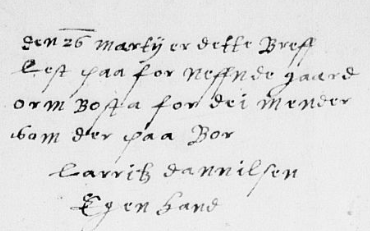 den 26 martij er dette Breff
Lest paa for neffnde gaard
orm Bosta for dei mender
som der paa Bor
Larritz dannilsen
Egen hand